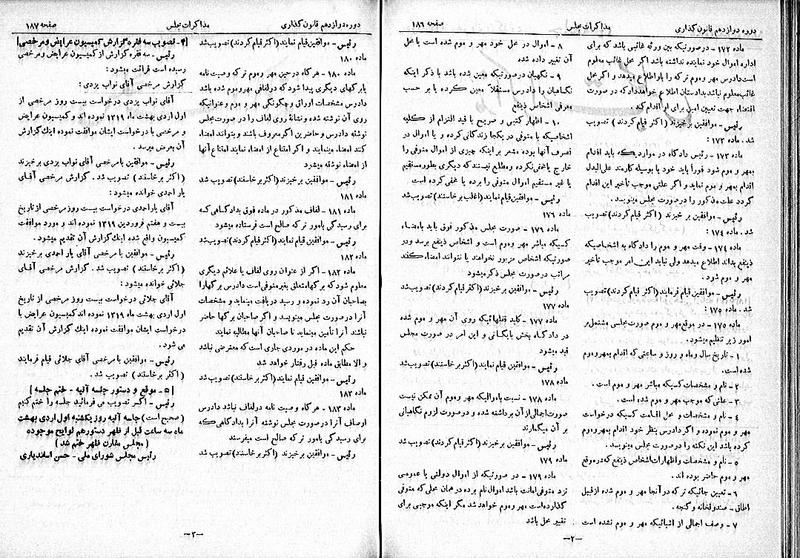 صفحه ۱۸۶
مذاکرات مجلس
دوره دوازدهم قانون گذاری
ماده ۱۷۲ - در صورتیکه بین ورثه غائبی باشد که برای
اداره اموال خود نماینده نداشته باشد اگر محل غائب معلوم
است دادرس مهر و موم ترکه را باو اطلاع میدهد و اگر محل
غائب معلوم نباشد دادستان اطلاع خواهد داد که در صورت
اقتضاء جهت تعیین امین برای او اقدام کند.
رئیس - موافقین برخیزند (اکثر قیام کردند) تصویب
شد. ماده ۱۷۳:
ماده ۱۷۳ - رئیس دادگاه در مواردیکه باید اقدام
بمهر و موم شود فوراً باید خود یا بوسیله کارمند علی‌البدل
اقدام بمهر و موم نماید و اگر علتی موجب تأخیر این اقدام
گردد علت مذکور را در صورت مجلس مینویسد.
رئیس - موافقین برخیزند (اکثر قیام کردند) تصویب
شد. ماده ۱۷۴:
ماده ۱۷۴ - وقت مهر و موم را دادگاه به اشخاصیکه
ذینفع بداند اطلاع میدهد ولی نباید این امر موجب تأخیر
مهر و موم شود.
رئیس - موافقین قیام فرمایند (اکثر قیام کردند) تصویب
شد. ماده ۱۷۵:
ماده ۱۷۵ - در موقع مهر و موم صورت مجلسی مشتمل بر
امور زیر تنظیم میشود:
۱ - تاریخ سال و ماه و روز و ساعتی که اقدام بمهر و موم
شده است.
۲ - نام و مشخصات کسیکه مباشر مهر و موم است.
۳ - علتی که موجب مهر و موم شده است.
۴ - نام و مشخصات و محل اقامت کسیکه درخواست
مهر و موم نموده و اگر دادرس بنظر خود اقدام بمهر و موم
کرده باشد این نکته را در صورت مجلس مینویسد.
۵ - نام و مشخصات و اظهارات اشخاص ذینفع که در موقع
مهر و موم حاضر بوده اند.
۶ - تعیین جائیکه ترکه در آنجا مهر و موم شده از قبیل
اطاق - صندوقخانه و گنجه.
۷ - وصف اجمالی از اشیائیکه مهر و موم نشده است
۸ - اموال در محل خود مهر و موم شده است یا محل
آن تغییر داده شده
۹ - نگهبان در صورتیکه معین شده باشد با ذکر اینکه
نگاهبان را دادرس مستقلاً معین کرده یا بر حسب
معرفی اشخاص ذینفع
۱۰ - اظهار کتبی و صریح با قید التزام از کلیه
اشخاصیکه با متوفی در یکجا زندگانی کرده و یا اموال در
تصرف آنها بوده مشعر بر اینکه چیزی از اموال متوفی را
خارج یا مخفی نکرده و مطلع نیستند که دیگری بطور مستقیم
یا غیر مستقیم اموال متوفی را برده یا مخفی کرده است
رئیس - موافقین قیام نمایند (اغلب برخاستند) تصویب شد
ماده ۱۷۶
ماده ۱۷۶ - صورت مجلس مذکور فوق باید بامضاء
کسیکه مباشر مهر و موم است و اشخاص ذینفع برسد و در
صورتیکه اشخاص مزبور نخواهند یا نتوانند امضاء کنند
مراتب در صورت مجلس ذکر میشود
رئیس - موافقین برخیزند (اکثر قیام کردند) تصویب شد
ماده ۱۷۷
ماده ۱۷۷ - کلید قفلهائیکه روی آن مهر و موم شده
در دادگاه بخش بایگانی و این امر در صورت مجلس
قید میشود
رئیس - موافقین قیام نمایند (اکثر برخاستند) تصویب شد
ماده ۱۷۸
ماده ۱۷۸ - نسبت باموالیکه مهر و موم آن ممکن نیست
صورت اجمالی از آن برداشته شده و در صورت لزوم نگاهبانی
بر آن میگمارند
رئیس - موافقین برخیزند (اکثر قیام کردند) تصویب شد
ماده ۱۷۹
ماده ۱۷۹ - در صورتیکه از اموال دولتی یا عمومی
نزد متوفی امانت باشد اموال نام برده در همان محلی که متوفی
گذارده است مهر و موم خواهد شد مگر اینکه موجبی برای
تغییر محل باشد
-۲-
دوره دوازدهم قانون گذاری
مذاکرات مجلس
صفحه ۱۸۷
رئیس - موافقین قیام نمایند (اکثر قیام کردند) تصویب شد
ماده ۱۸۰
ماده ۱۸۰ - هر گاه در حین مهر و موم ترکه وصیت نامه
یا برگهای دیگری پیدا شود که در لفافی مهر و موم شده باشد
دادرس مشخصات اوراق و چگونگی مهر و موم و عنوانیکه
روی آن نوشته شده و نشانهٔ روی لفاف را در صورت مجلس
نوشته دادرس و حاضرین اگر معروف باشند و بتوانند امضاء
کنند امضاء مینمایند و اگر امتناع از امضاء نمایند امتناع آنها
از امضاء نوشته میشود
رئیس - موافقین برخیزند (اکثر برخاستند) تصویب شد
ماده ۱۸۱
ماده ۱۸۱ - لفاف مذکور در ماده فوق بدادگاهی که
برای رسیدگی بامور ترکه صالح است فرستاده میشود
رئیس - موافقین قیام نمایند (اکثر قیام کردند) تصویب شد
ماده ۱۸۲
ماده ۱۸۲ - اگر از عنوان روی لفاف یا علائم دیگری
معلوم شود که برگها متعلق بغیر متوفی است دادرس برگها را
بصاحبان آن رد نموده و رسید دریافت مینماید و مشخصات
آنرا در صورت مجلس مینویسد و اگر صاحبان برگها حاضر
نباشند آنرا تأمین مینماید تا صاحبان آنها مطالبه نمایند
حکم این ماده در موردی جاری است که معترضی نباشد
و الا مطابق ماده قبل رفتار خواهد شد
رئیس - موافقین قیام نمایند (اکثر برخاستند) تصویب شد
ماده ۱۸۳
ماده ۱۸۳ - هر گاه وصیت نامه در لفاف نباشد دادرس
اوصاف آنرا در صورت مجلس نوشته آنرا بدادگاهی که
برای رسیدگی بامور ترکه صالح است میفرستد
رئیس - موافقین برخیزند (اکثر برخاستند) تصویب شد
[۴ - تصویب سه فقره گزارش کمیسیون عرایض و مرخصی]
رئیس - سه فقره گزارش از کمیسیون عرایض و مرخصی
رسیده است قرائت میشود:
گزارش مرخصی آقای نواب یزدی:
آقای نواب یزدی درخواست بیست روز مرخصی از
اول اردی بهشت ماه ۱۳۱۹ نموده اند و کمیسیون عرایض
و مرخصی با درخواست ایشان موافقت نموده اینک گزارش
آن بعرض میرسد.
رئیس - موافقین با مرخصی آقای نواب یزدی برخیزند
(اکثر برخاستند) تصویب شد. گزارش مرخصی آقای
یار احمدی خوانده میشود:
آقای یار احمدی درخواست بیست روز مرخصی از تاریخ
بیست و هفتم فروردین ۱۳۱۹ نموده اند و مورد موافقت
کمیسیون واقع شده اینک گزارش آن تقدیم میشود.
رئیس - موافقین با مرخصی آقای یار احمدی برخیزند
(اکثر برخاستند) تصویب شد. گزارش مرخصی آقای
جلائی خوانده میشود:
آقای جلائی درخواست بیست روز مرخصی از تاریخ
اول اردی بهشت ماه ۱۳۱۹ نموده اند کمیسیون عرایض با
درخواست ایشان موافقت نموده اینک گزارش آن تقدیم
می شود.
رئیس - موافقین با مرخصی آقای جلائی قیام فرمایند
(اکثر برخاستند) تصویب شد.
[۵ - موقع و دستور جلسه آتیه - ختم جلسه]
رئیس - اگر تصویب می فرمائید جلسه را ختم کنیم
(صحیح است) جلسه آتیه روز یکشنبه اول اردی بهشت
ماه سه ساعت قبل از ظهر دستور هم لوایح موجوده
(مجلس مقارن ظهر ختم شد)
رئیس مجلس شورای ملی - حسن اسفندیاری
-۳-